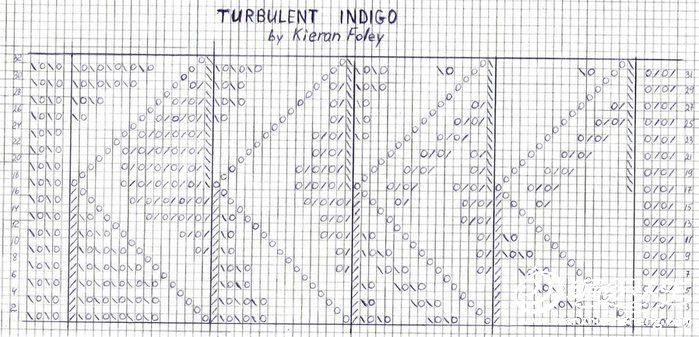 TURBULENT INDIGO
by Kieran Foley
32
31
30
29
28
27
26
25
24
23
22
21
20
19
18
17
16
15
14
13
12
11
10
9
8
7
6
5
4
2